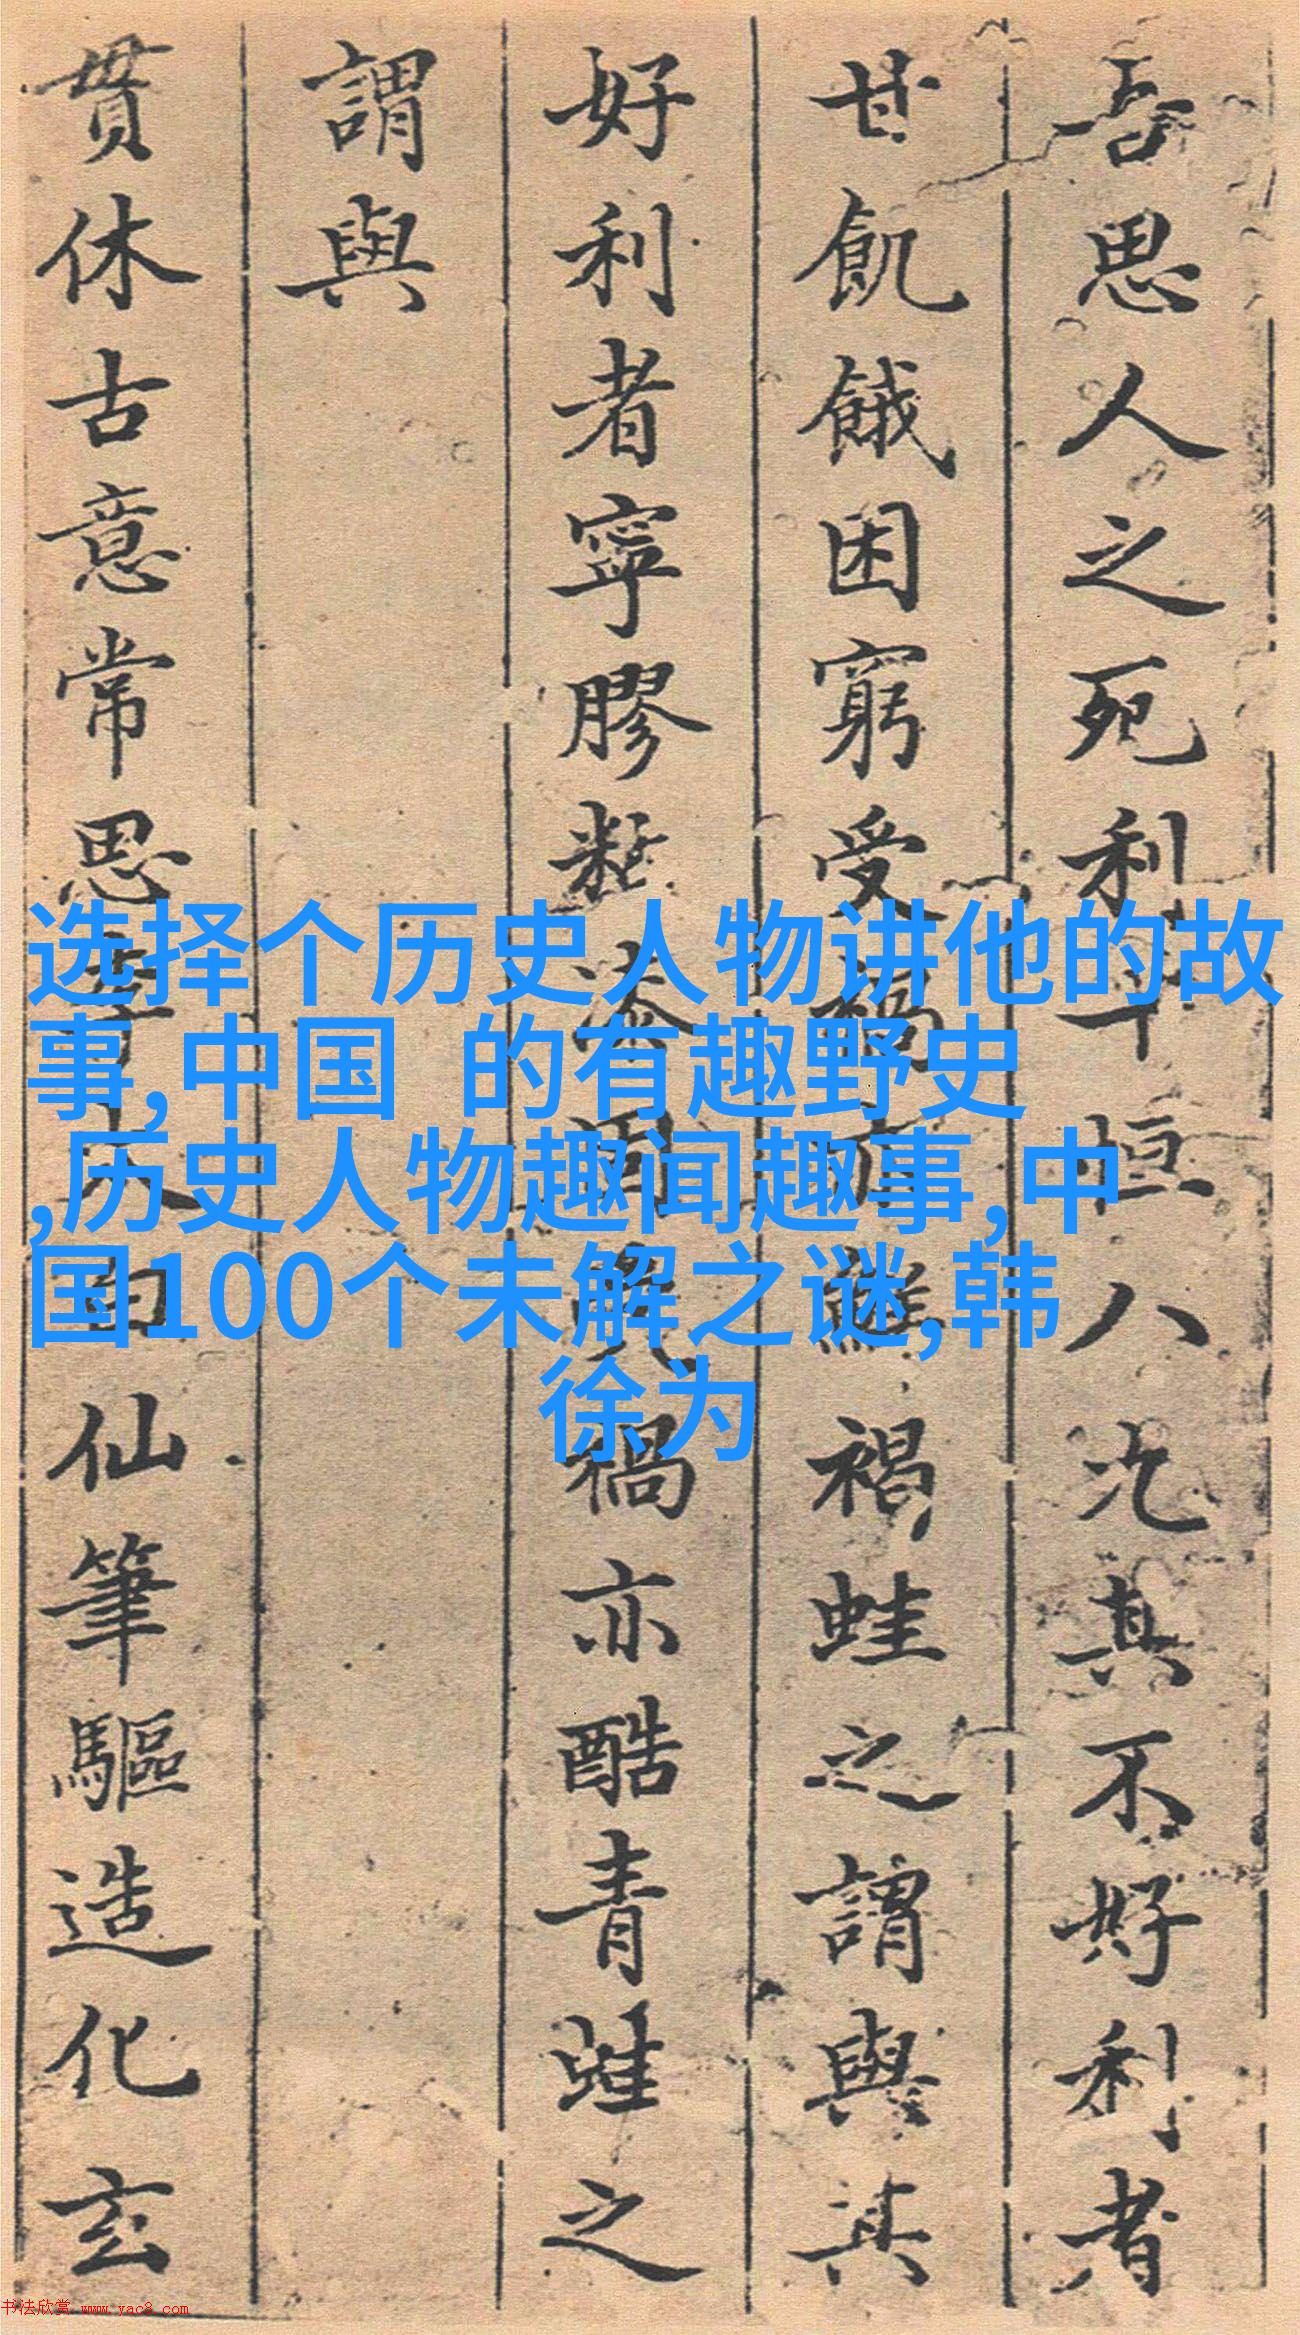 吾思人之死利十恒八况其不好利者
甘飢餓困窮受禍褐蛙之謂與其
好利者寧膠黏漆固死禍亦酷青蛙之
謂與
貫休古意常思李太白仙筆驅造化玄
选择个历史人物讲他的故
事,中国 的有趣野史
,历史人物趣闻趣事,中
国100个未解之谜,韩
徐为
书法欣赏 www.yac8.com